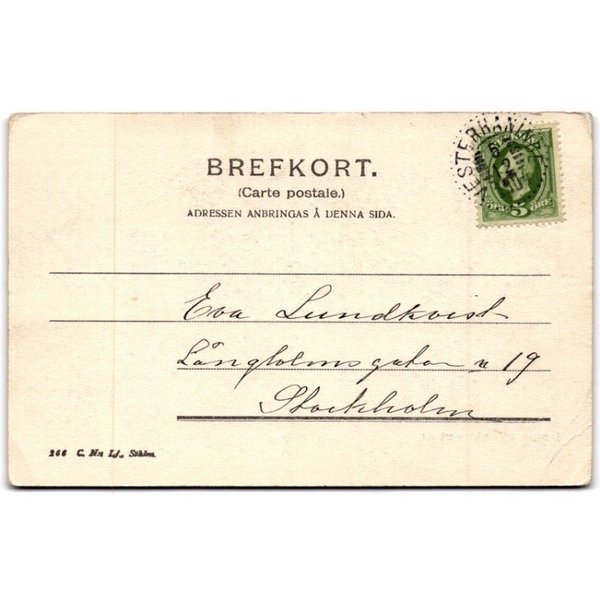 BREFKORT.
(Carte postale.)
ADRESSEN ANBRINGAS Å DENNA SIDA.
VESTERHANINGE
5 ÖRE
Eva Lundkvist
Långholmsgatan n 19
Stockholm
266 C. N:s Lj., Sthlm.